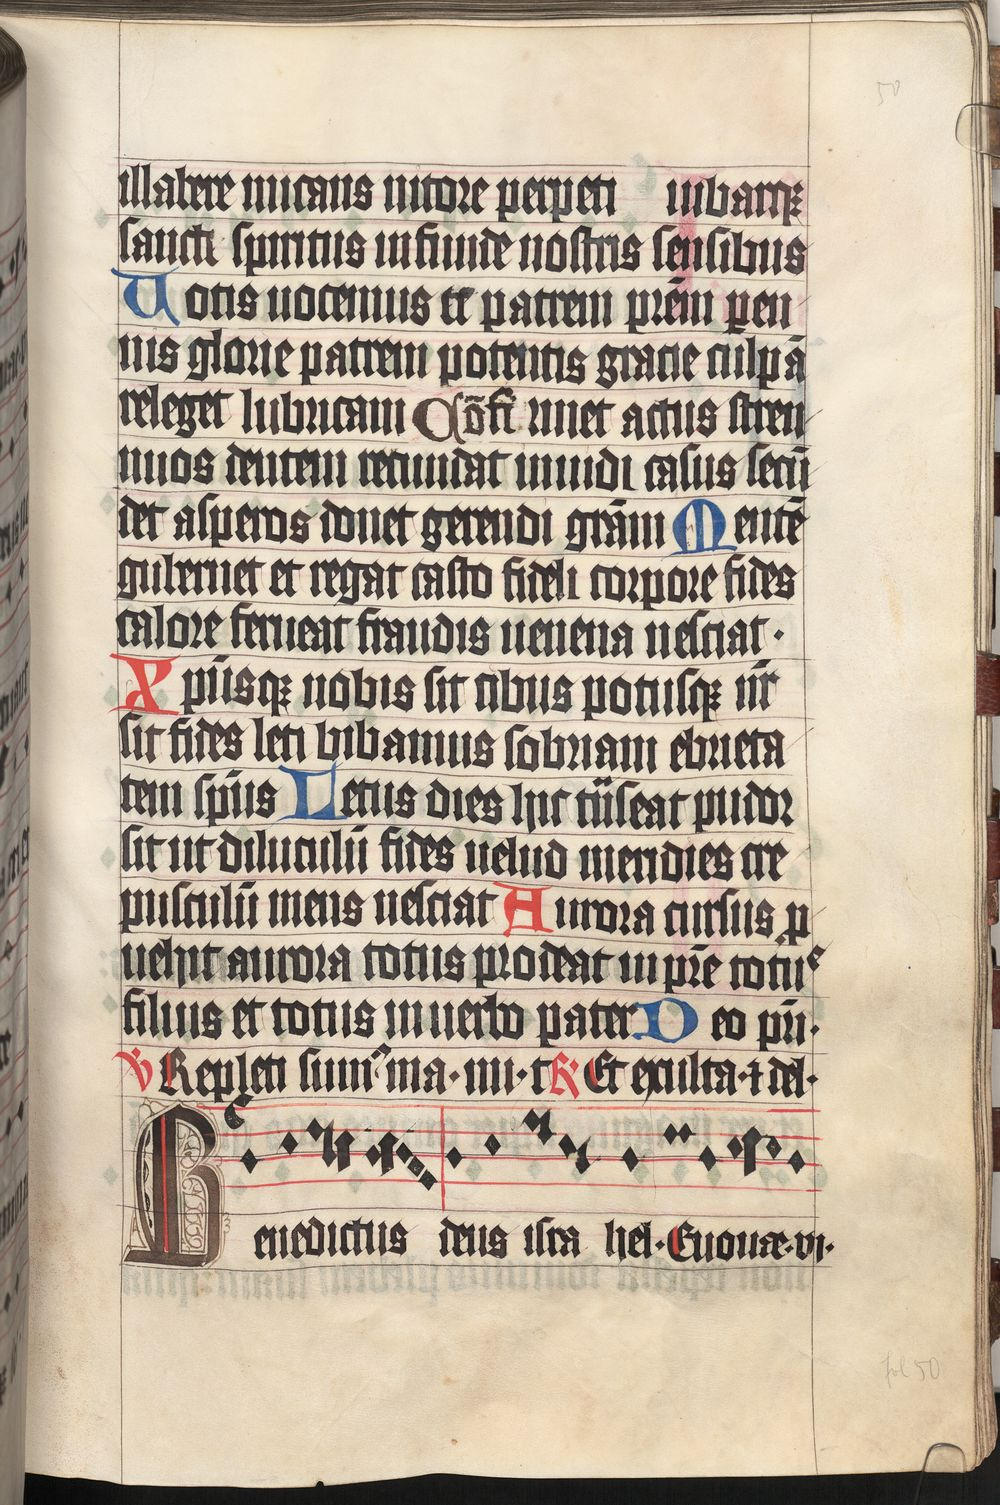 50
illabere micans nitore perpeti iubarqꝫ
sancti spiritus infunde nostris sensibus
Uotis uocemus et patrem prēm peren
nis glorie patrem potentis gratie culpā
releget lubricam Cōfirmet actus stren
nuos dentem retundat inuidi casus secū
det asperos donet gerendi grām Mentē
gubernet et regat casto fideli corpore fides
calore ferueat fraudis uenena nesciat·
Xpūsqꝫ nobis sit cibus potusqꝫ nr̄
sit fides leti bibamus sobriam ebrieta
tem sp̄us Letus dies hic tn̄seat pudor
sit ut diluculū fides uelud meridies cre
pusculū mens nesciat Aurora cursus ꝓ
uehit aurora totus prodeat in pr̄e totus
filius et totus in uerbo pater Deo pri·
V Repleti sumꝰ ma· mi· t R Et exulta· ⁊ del·
Benedictus deus isra hel· Euouae· vi·
fol 50